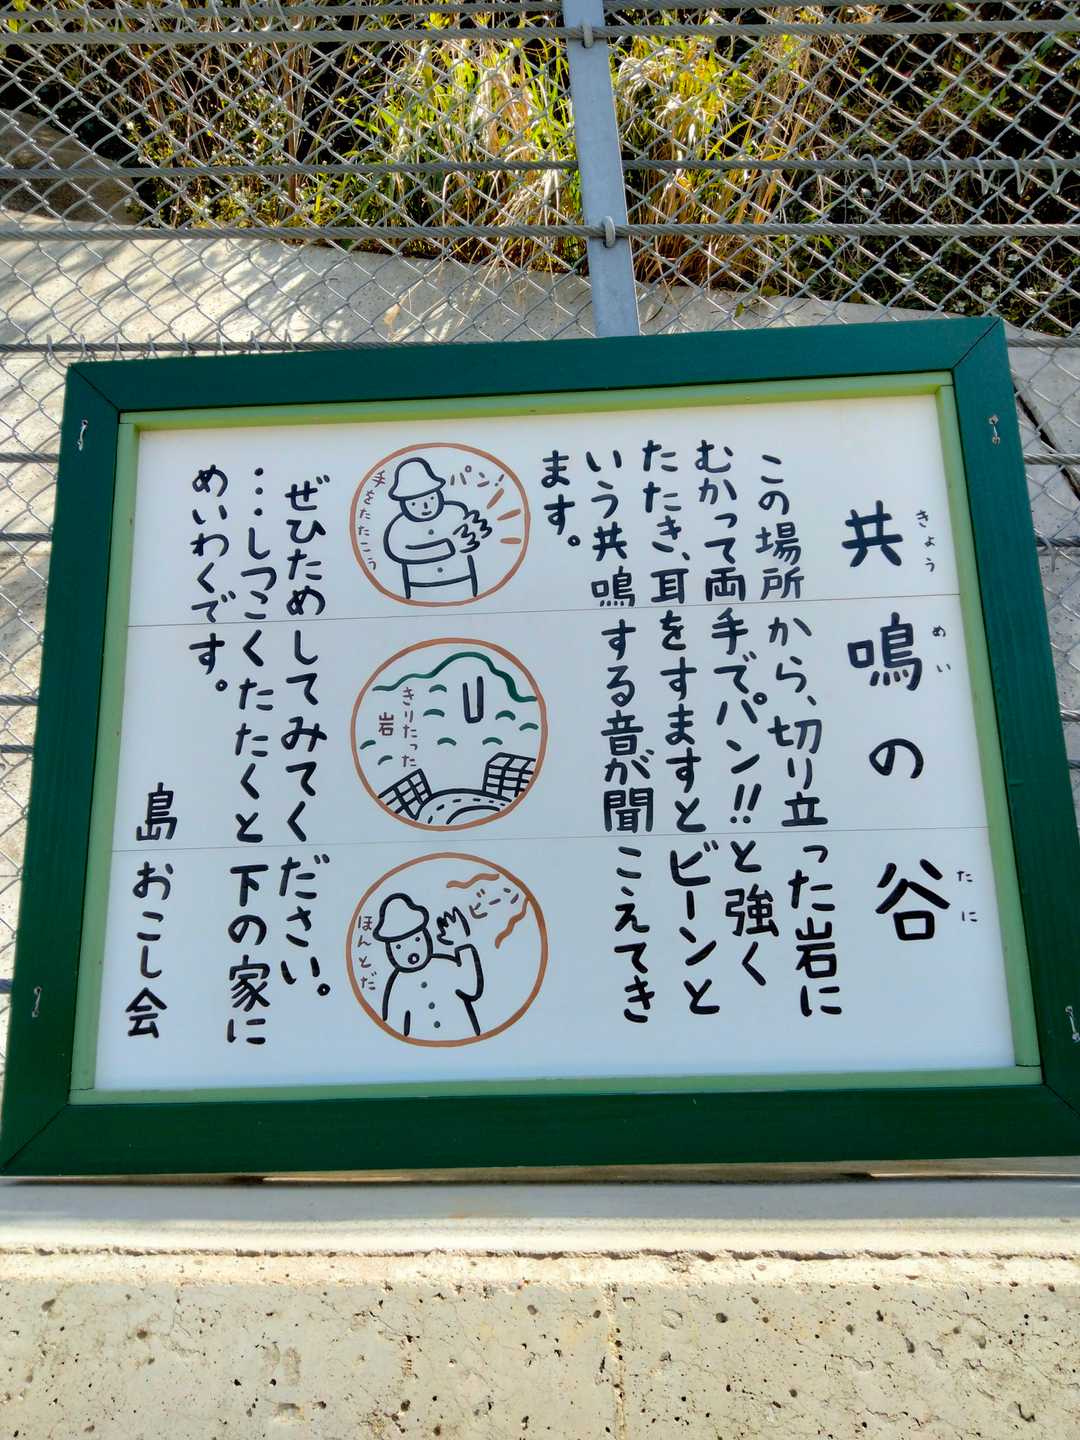 共鳴の谷
きょう
めい
たに
この場所から、切り立った岩に
むかって両手でパン!!と強く
たたき、耳をすますとビーンと
いう共鳴する音が聞こえてき
ます。
手をたたこう
パン!
きりたった
岩
ビーン
ほんとだ
ぜひためしてみてください。
・・・しつこくたたくと下の家に
めいわくです。
島おこし会